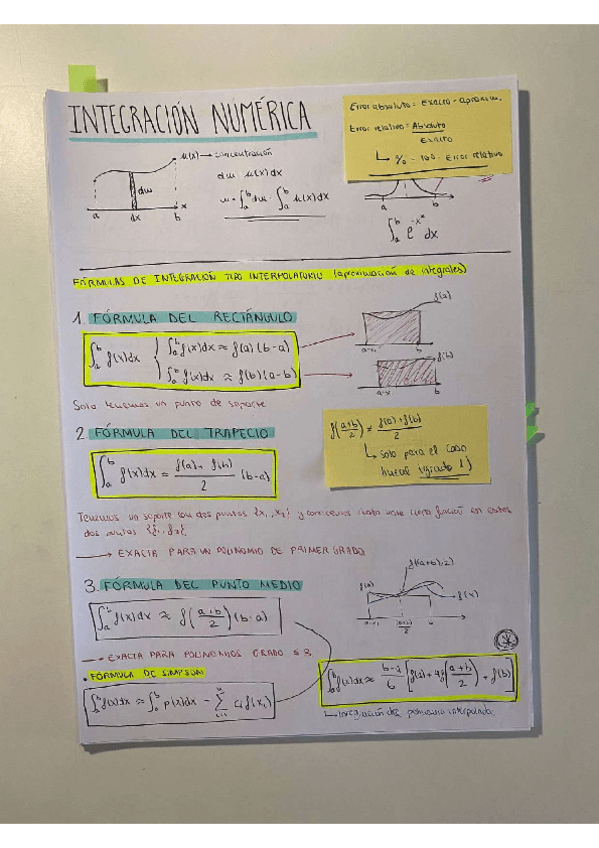 INTEGRACIÓN NUMÉRICA
Error absoluto = Exacto - aproxim.
Error relativo = Absoluto
Exacto
% = 100 · Error relativo
u(x) → concentración
dw = u(x)dx
w = ∫_a^b dw = ∫_a^b u(x)dx
dw
a dx b x
a b
∫_a^b e^{-x²} dx
FÓRMULAS DE INTEGRACIÓN TIPO INTERPOLATORIO (aproximación de integrales)
1. FÓRMULA DEL RECTÁNGULO
∫_a^b f(x)dx { ∫_a^b f(x)dx ≈ f(a)(b-a)
∫_a^b f(x)dx ≈ f(b)(a-b)
f(a)
b
f(b)
b
Solo tenemos un punto de soporte
2. FÓRMULA DEL TRAPECIO
∫_a^b f(x)dx = f(a) + f(b) / 2 (b-a)
f(a+b/2) ≠ f(a)+f(b)/2
↳ solo para el caso
lineal (grado 1)
Tenemos un soporte con dos puntos {x₁, x₂} y conocemos cuanto vale cierta función en estos
dos puntos
→ EXACTA PARA UN POLINOMIO DE PRIMER GRADO
3. FÓRMULA DEL PUNTO MEDIO
∫_a^b f(x)dx ≈ f(a+b/2)(b-a)
f(a+b)/2)
f(a) f(x)
(a+b)/2 b
→ EXACTA PARA POLINOMIOS GRADO ≤ 3
· FÓRMULA DE SIMPSON
∫_a^b f(x)dx ≈ ∫_a^b p(x)dx = Σ cᵢf(xᵢ)
∫_a^b f(x)dx ≈ b-a/6 [f(a) + 4f(a+b/2) + f(b)]
↳ Integración del polinomio interpolado